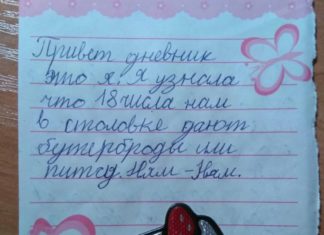 Привет дневник
это я. Я узнала
что 18 числа нам
в столовке дают
бутерброды или
питсу. Ням-Ням.